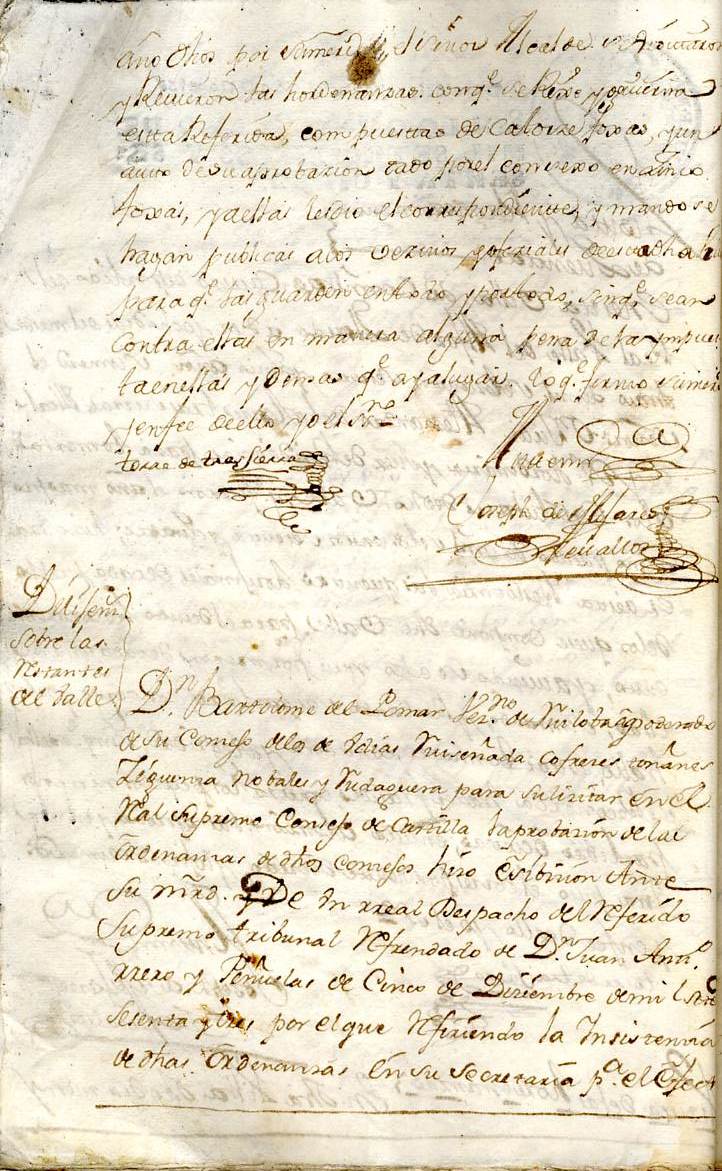 año dhos por su merd Señor Alcalde se
y Revieron las hordenanzas conqe se Rexe y govierna
esta Referida, compuestas de catorze foxas, y un
auto de su aprobazion dado por el consexo en zinco
foxas, y a ellas les dio el correspondiente, y mando se
hagan publicas a los vezinos y ofiziales de esta dha
para qe las guarden en todo y por todo, sin qe sean
contra ellas en manera alguna pena de la ympues
ta en ellas y demas qe aya lugar. Lo qe firmo su merd
y en fee de ello yo el Srno
torre de tres sierra
Ante mi
Joseph de
Zevallos
sobre las
Restantes
del Valle
Dn Bartolome del Pomar Vezno de poderado
de su Conzejo de los de Udias Ruiseñada cofreces toñanes
Ziguenza Nobales y Rudaguera para solizitar en el
Rl Supremo Consejo de Castilla la aprobazion de las
ordenanzas de dhos conzejos hizo esibizion Ante
su mrd. De Un rreal Despacho del Referido
Supremo tribunal Refrendado de Dn Juan Anto
rrero y Peñuelas de Cinco de Diziembre de mil Sete
sesenta y tres por el que Refiriendo la Insistenzia
de dhas Ordenanzas En su Secretaria pa el Efect